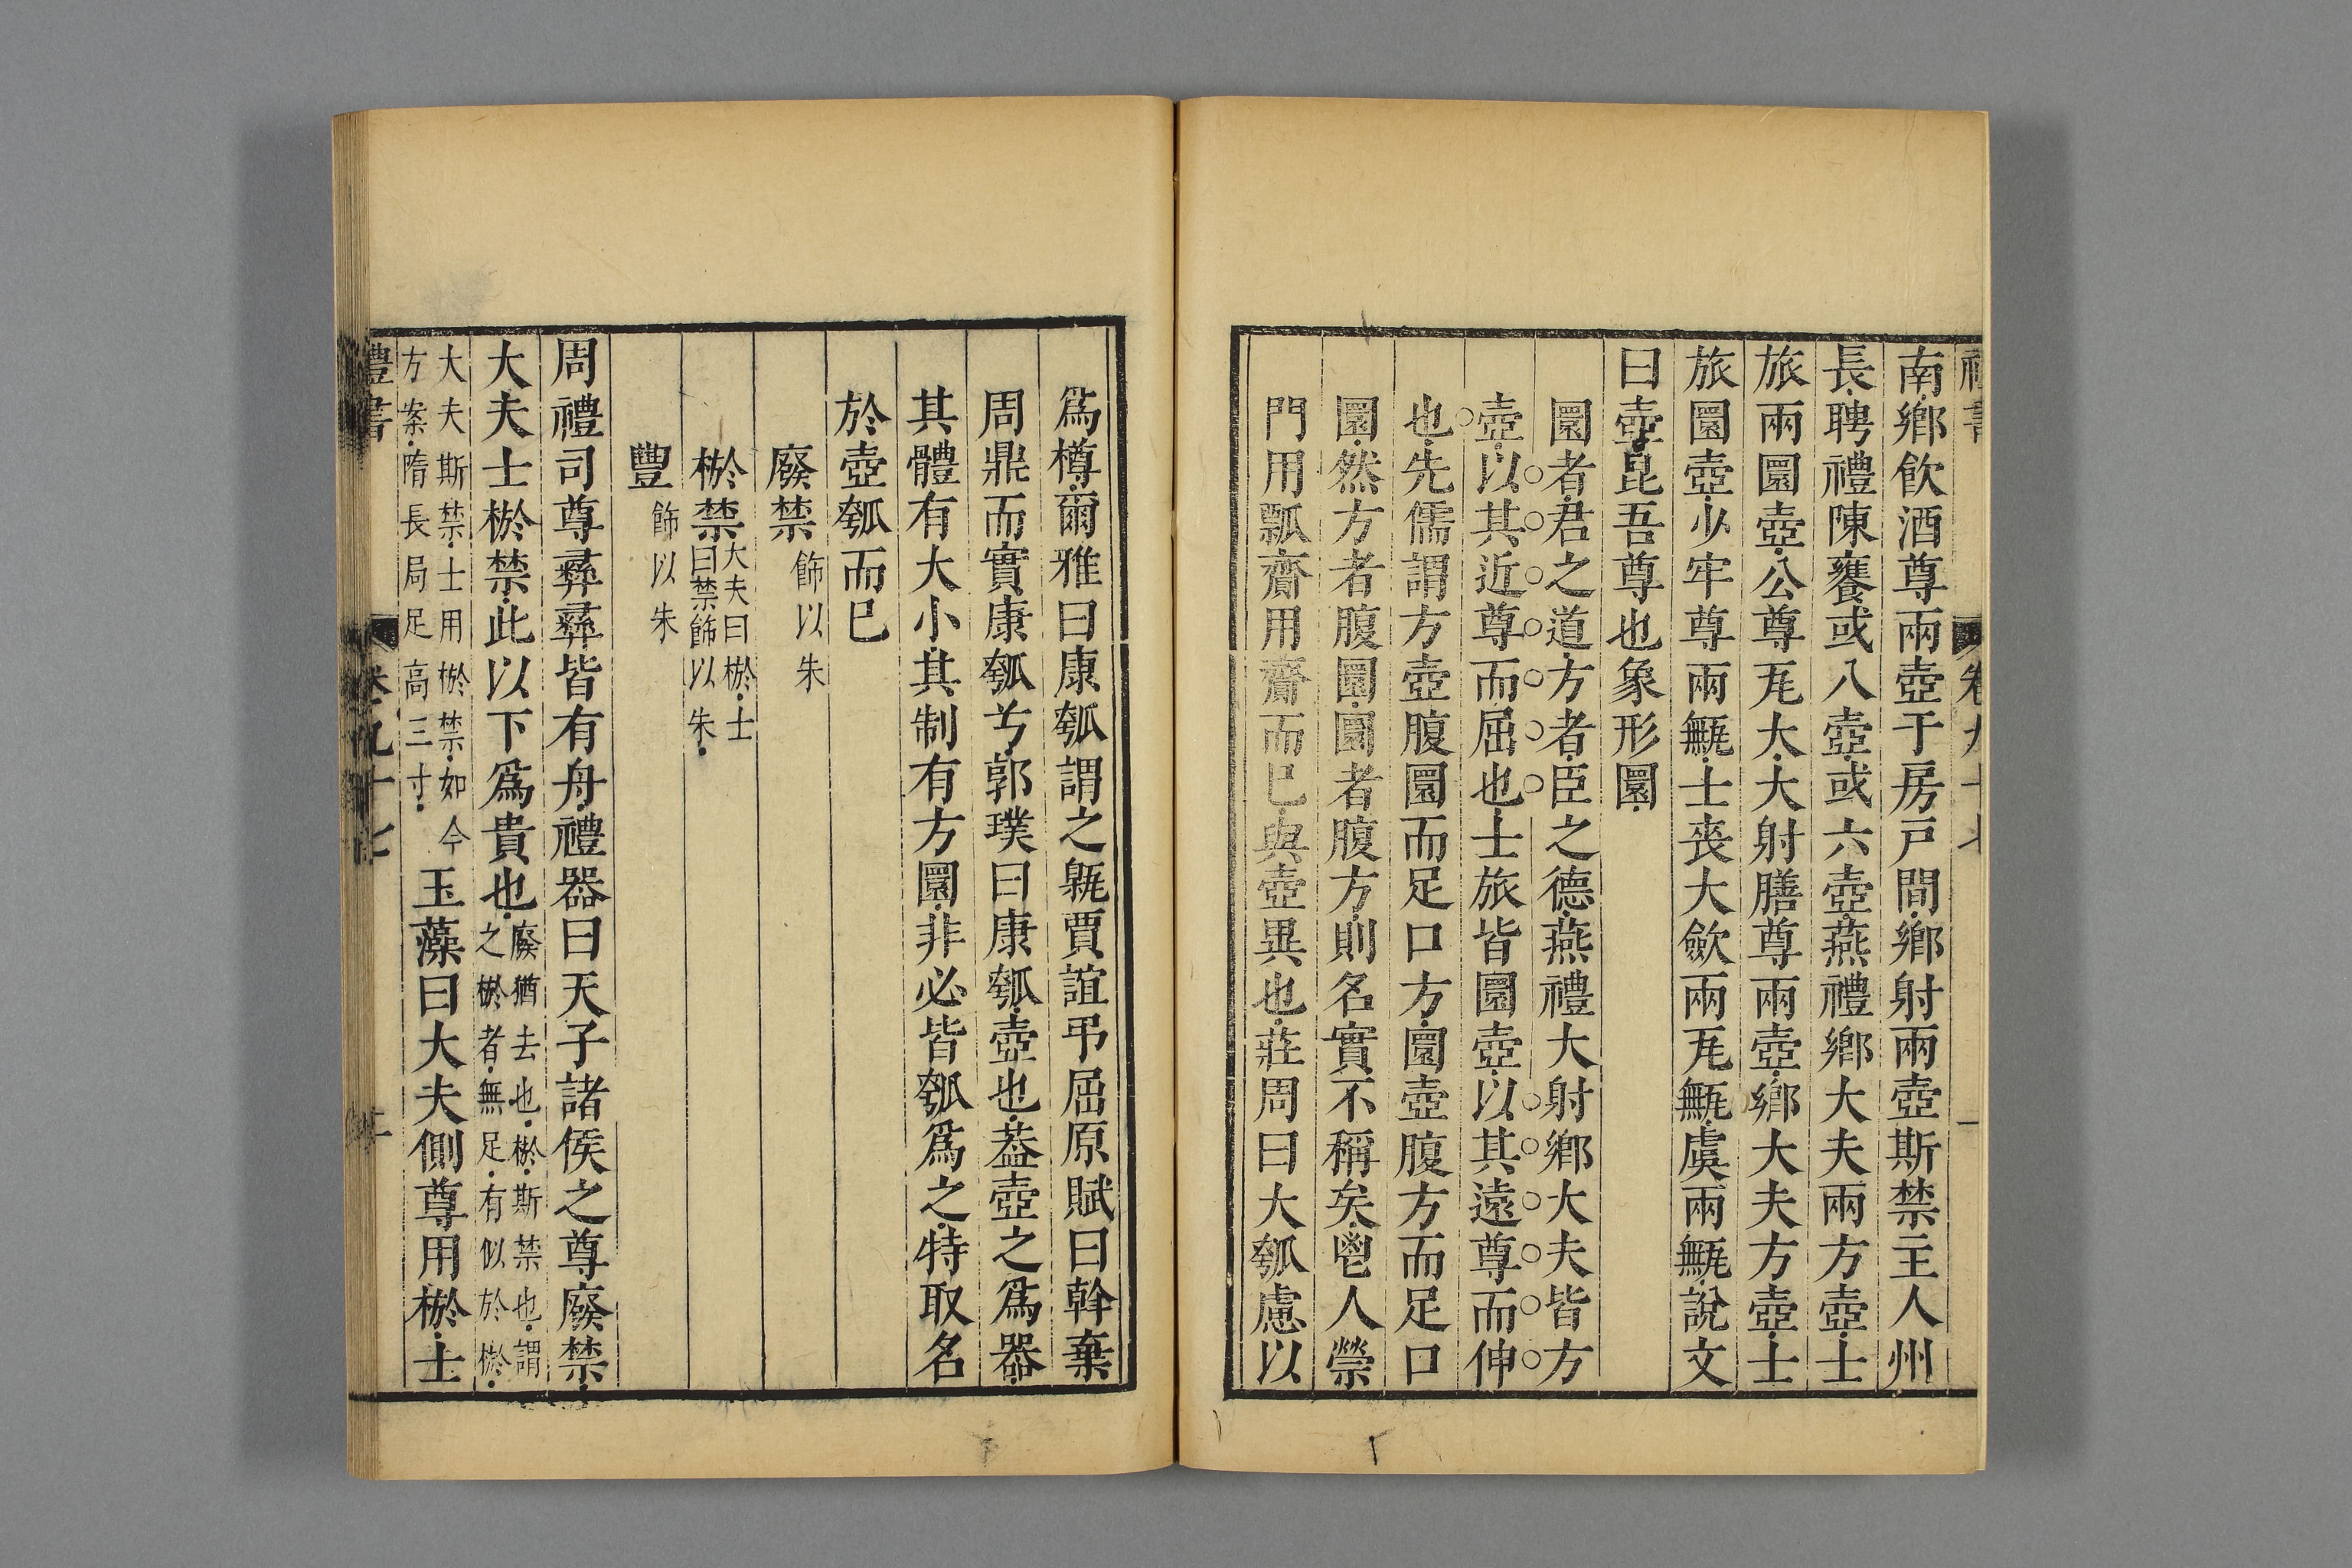 南鄉飲酒尊兩壺于房戶間鄉射兩壺斯禁主人州
長聘禮陳饔或八壺或六壺燕禮鄉大夫兩方壺士
旅兩圜壺公尊瓦大大射膳尊兩壺鄉大夫方壺士
旅圜壺少牢尊兩甒士喪大斂兩瓦甒虞兩甒說文
曰壺昆吾尊也象形圜
圜者君之道方者臣之德燕禮大射鄉大夫皆方
壺以其近尊而屈也士旅皆圜壺以其遠尊而伸
也先儒謂方壺腹圜而足口方圜壺腹方而足口
圜然方者腹圜圜者腹方則名實不稱矣鬯人禜
門用瓢齎用齎而已與壺異也莊周曰大瓠慮以
爲樽爾雅曰康瓠謂之甈賈誼弔屈原賦曰斡棄
周鼎而實康瓠兮郭璞曰康瓠壺也葢壺之爲器
其體有大小其制有方圜非必皆瓠爲之特取名
於壺瓠而已
廢禁飾以朱
棜禁大夫曰棜士曰禁飾以朱
豐飾以朱
周禮司尊彝彝皆有舟禮器曰天子諸侯之尊廢禁
大夫士棜禁此以下爲貴也廢猶去也棜斯禁也謂之棜者無足有似於棜
大夫斯禁士用棜禁如今方案隋長局足高三寸玉藻曰大夫側尊用棜士
禮書 卷九十七